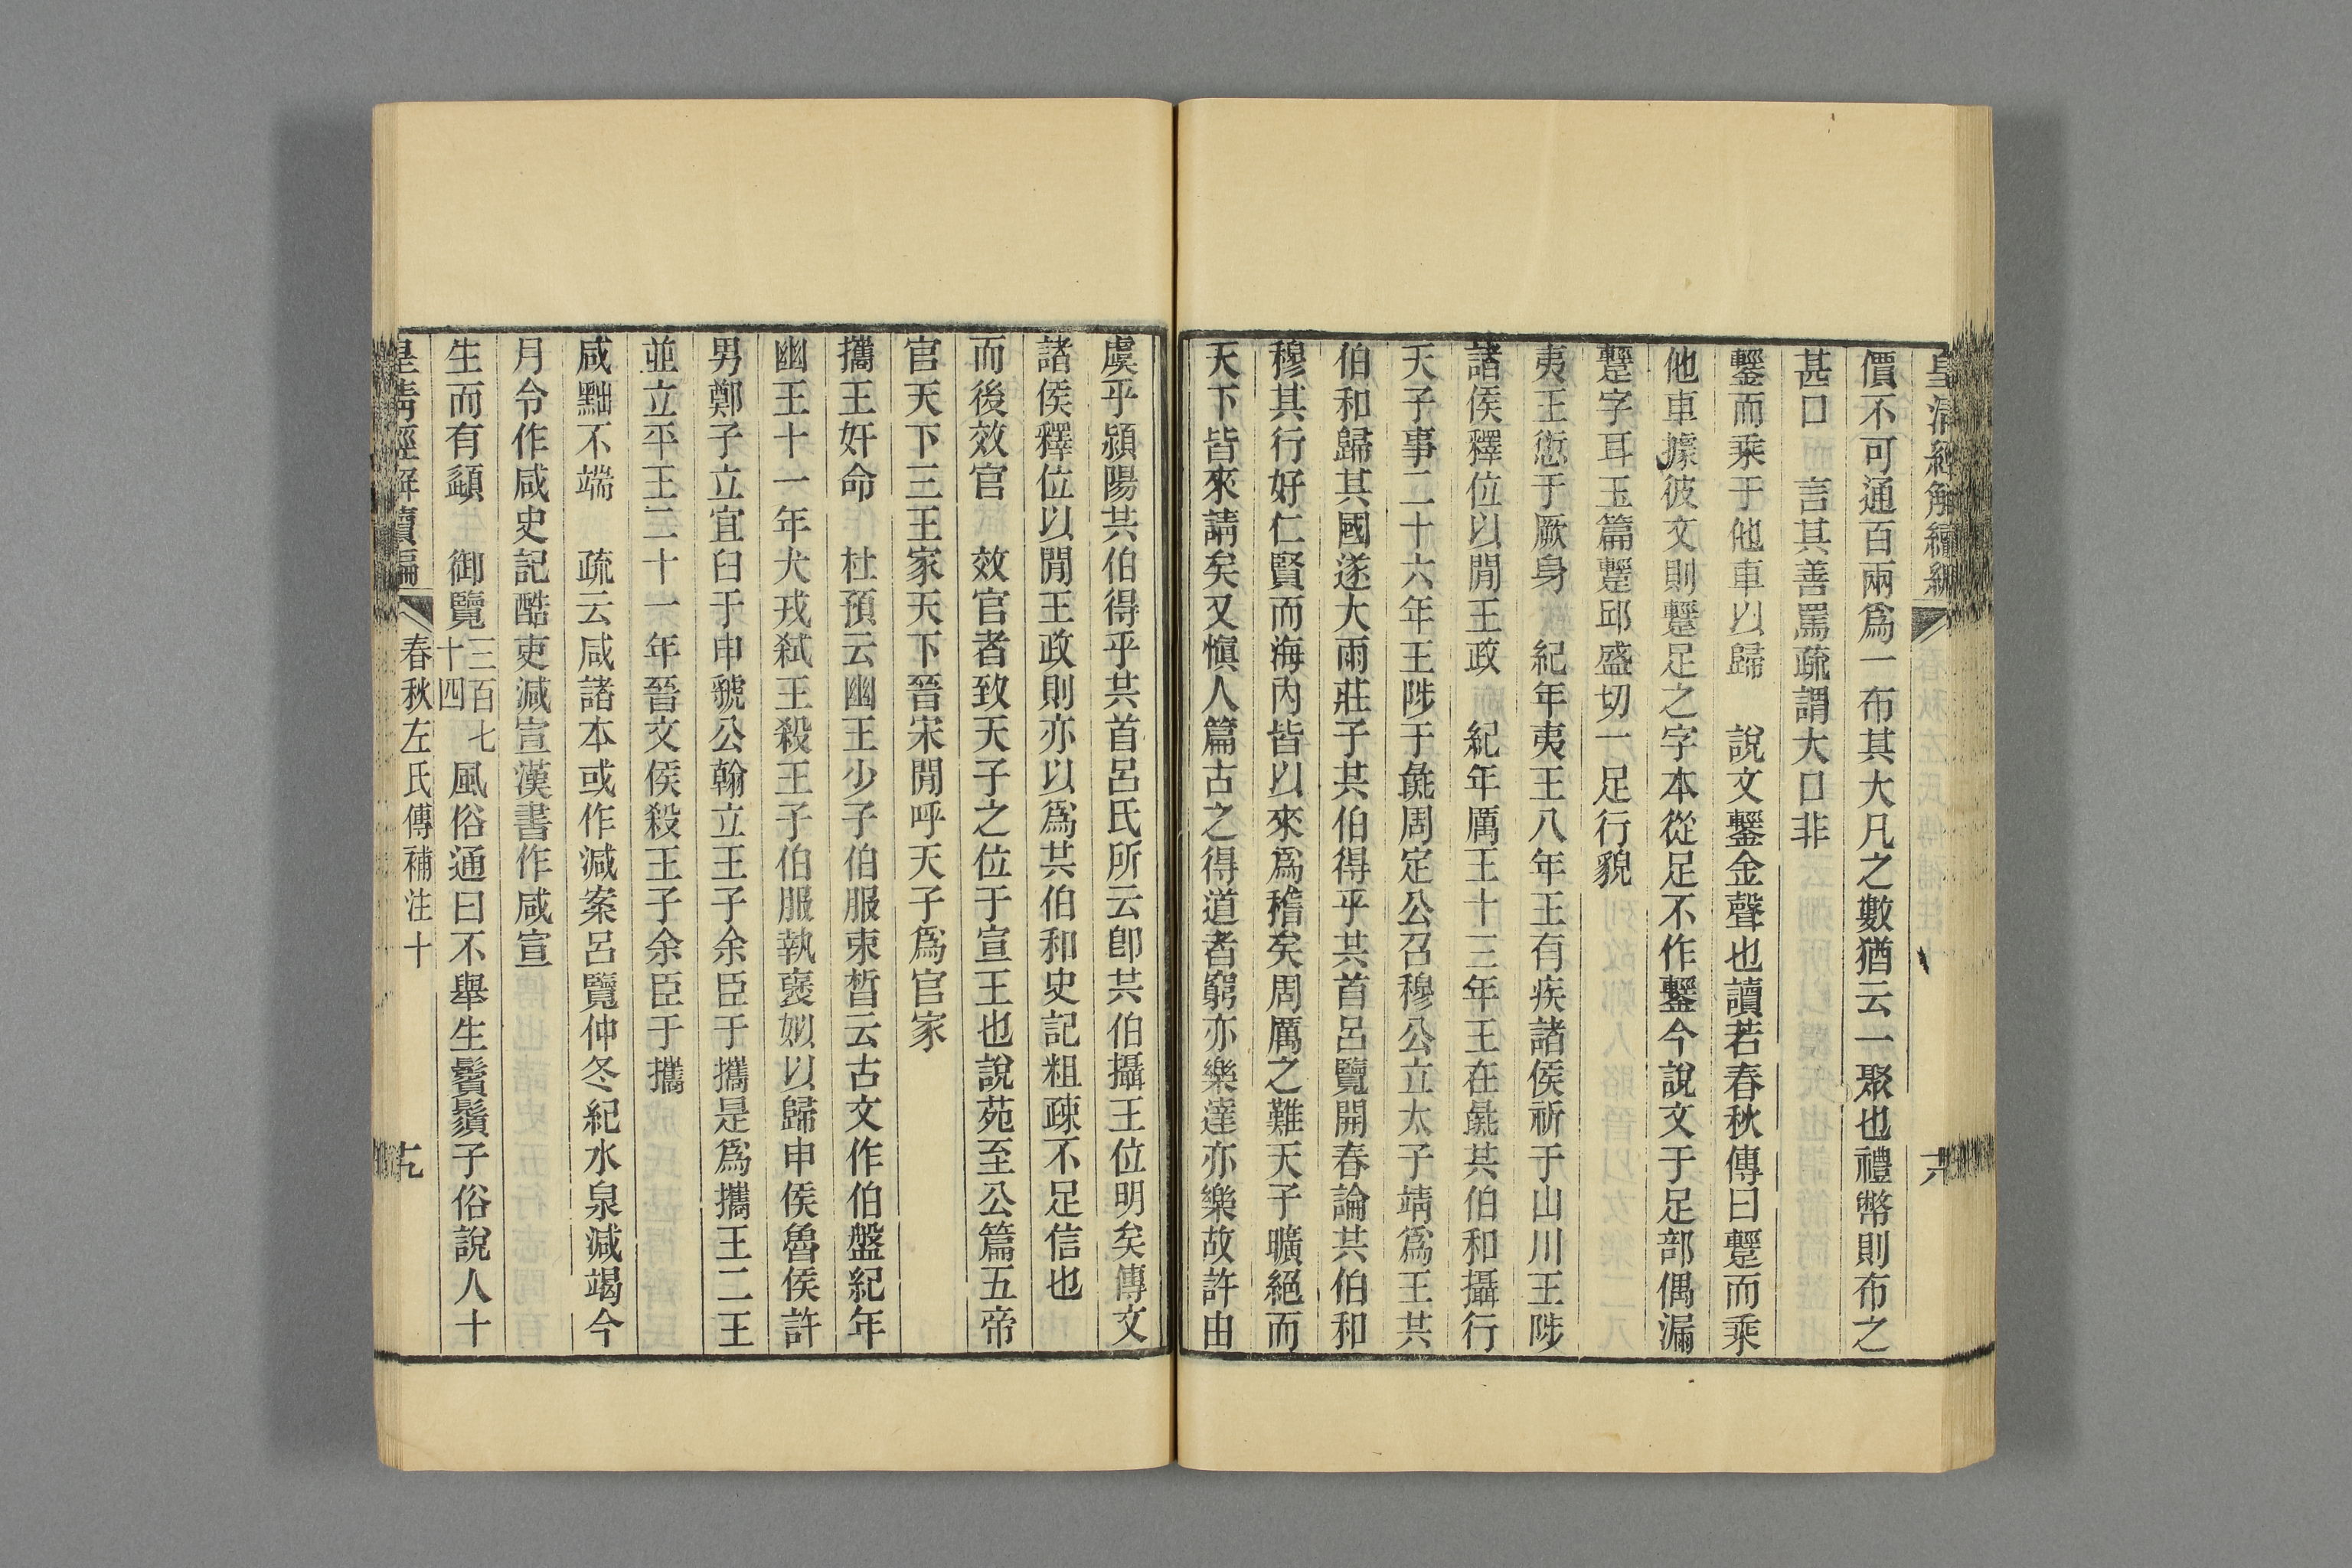 皇清經解續編
價不可通百兩爲一布其大凡之數猶云一聚也禮幣則布之
甚口　言其善罵疏謂大口非
鑋而乘于他車以歸　說文鑋金聲也讀若春秋傳曰䠊而乘
他車據彼文則䠊足之字本從足不作鑋今說文于足部偶漏
䠊字耳玉篇䠊邱盛切一足行貌
夷王愆于厥身　紀年夷王八年王有疾諸侯祈于山川王陟
諸侯釋位以閒王政　紀年厲王十三年王在彘共伯和攝行
天子事二十六年王陟于彘周定公召穆公立太子靖爲王共
伯和歸其國遂大雨莊子共伯得乎共首呂覽開春論共伯和
穆其行好仁賢而海內皆以來爲稽矣周厲之難天子曠絕而
天下皆來請矣又愼人篇古之得道者窮亦樂達亦樂故許由
虞乎潁陽共伯得乎共首呂氏所云卽共伯攝王位明矣傳文
諸侯釋位以閒王政則亦以爲共伯和史記粗疎不足信也
而後效官　效官者致天子之位于宣王也說苑至公篇五帝
官天下三王家天下晉宋閒呼天子爲官家
攜王奸命　杜預云幽王少子伯服束晳云古文作伯盤紀年
幽王十一年犬戎弒王殺王子伯服執褒姒以歸申侯魯侯許
男鄭子立宜臼于申虢公翰立王子余臣于攜是爲攜王二王
並立平王二十一年晉文侯殺王子余臣于攜
咸黜不端　疏云咸諸本或作減案呂覽仲冬紀水泉減竭今
月令作咸史記酷吏減宣漢書作咸宣
生而有頿　御覽三百七十四風俗通曰不舉生鬢鬚子俗說人十
皇清經解續編　春秋左氏傳補注十　十九